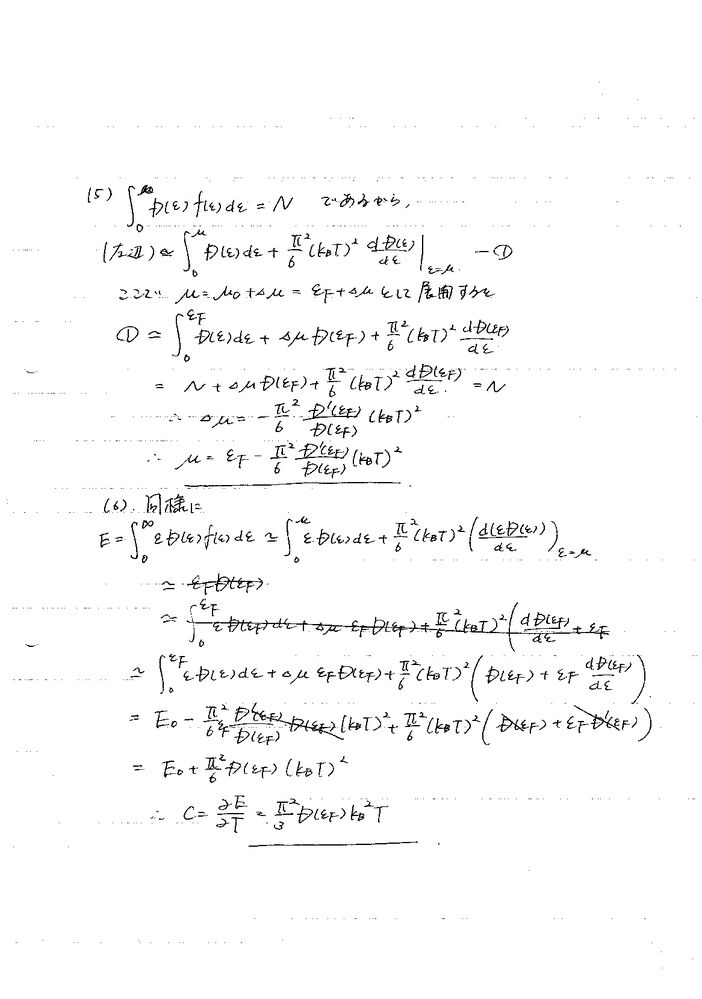 (5) ∫_0^∞ D(ε) f(ε) dε = N であるから,
(左辺) ≃ ∫_0^μ D(ε) dε + π²/6 (k_BT)² dD(ε)/dε |_{ε=μ} ― ①
ここで μ = μ₀ + Δμ = ε_F + Δμ として展開すると
① ≃ ∫_0^{ε_F} D(ε) dε + Δμ D(ε_F) + π²/6 (k_BT)² dD(ε_F)/dε
= N + Δμ D(ε_F) + π²/6 (k_BT)² dD(ε_F)/dε = N
∴ Δμ = − π²/6 D'(ε_F)/D(ε_F) (k_BT)²
∴ μ = ε_F − π²/6 D'(ε_F)/D(ε_F) (k_BT)²
(6) 同様に
E = ∫_0^∞ ε D(ε) f(ε) dε ≃ ∫_0^μ ε D(ε) dε + π²/6 (k_BT)² (d(εD(ε))/dε)_{ε=μ}
≃ ε_F D(ε_F)
≃ ∫_0^{ε_F} ε D(ε_F) dε + Δμ ε_F D(ε_F) + π²/6 (k_BT)² ( dD(ε_F)/dε + ε_F
≃ ∫_0^{ε_F} ε D(ε) dε + Δμ ε_F D(ε_F) + π²/6 (k_BT)² ( D(ε_F) + ε_F dD(ε_F)/dε )
= E₀ − π²/6 ε_F D'(ε_F)/D(ε_F) D(ε_F) (k_BT)² + π²/6 (k_BT)² ( D(ε_F) + ε_F D'(ε_F) )
= E₀ + π²/6 D(ε_F) (k_BT)²
∴ C = ∂E/∂T = π²/3 D(ε_F) k_B² T